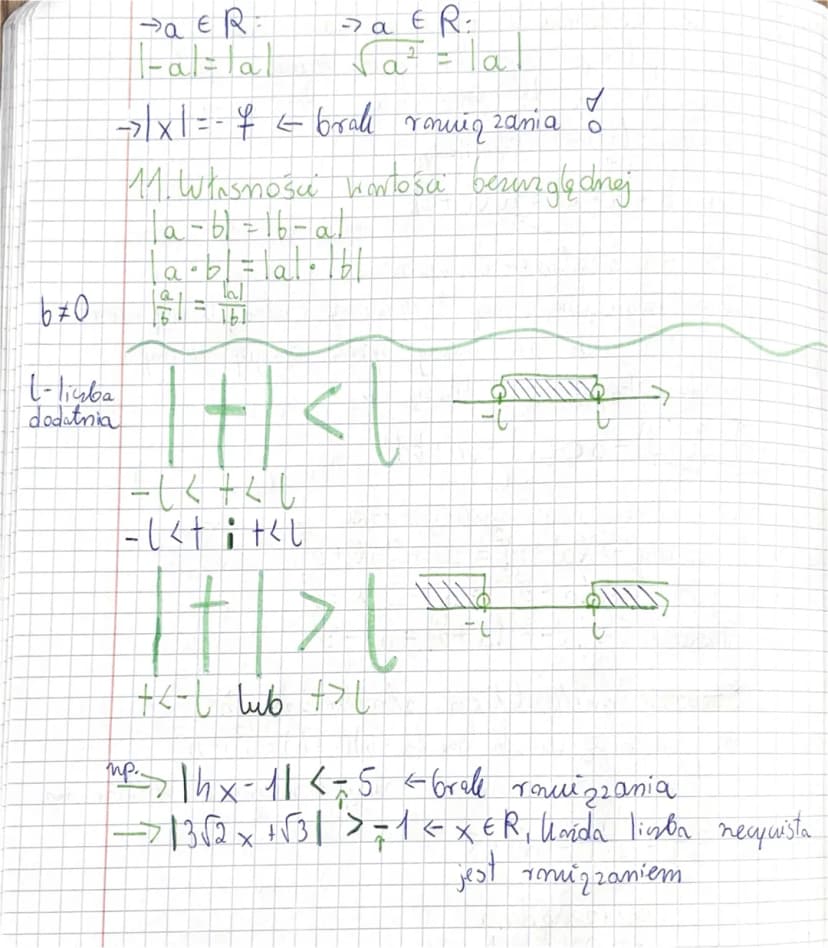 →a ∈ R: →a ∈ R:
|-a|=|a| √a² = |a|
→|x|=-7 ← brak rozwiązania !
11. Własności wartości bezwzględnej
|a-b|=|b-a|
|a·b|=|a|·|b|
b≠0 |a/b| = |a|/|b|
l-liczba
dodatnia
|t|<l
-l l
-l< t< l
-l<t i t<l
|t|>l
-l l
t<-l lub t>l
np. → |4x-1| <-5 ← brak rozwiązania
→ |3√2 x +√3| >-1 ← x∈R, każda liczba rzeczywista
jest rozwiązaniem